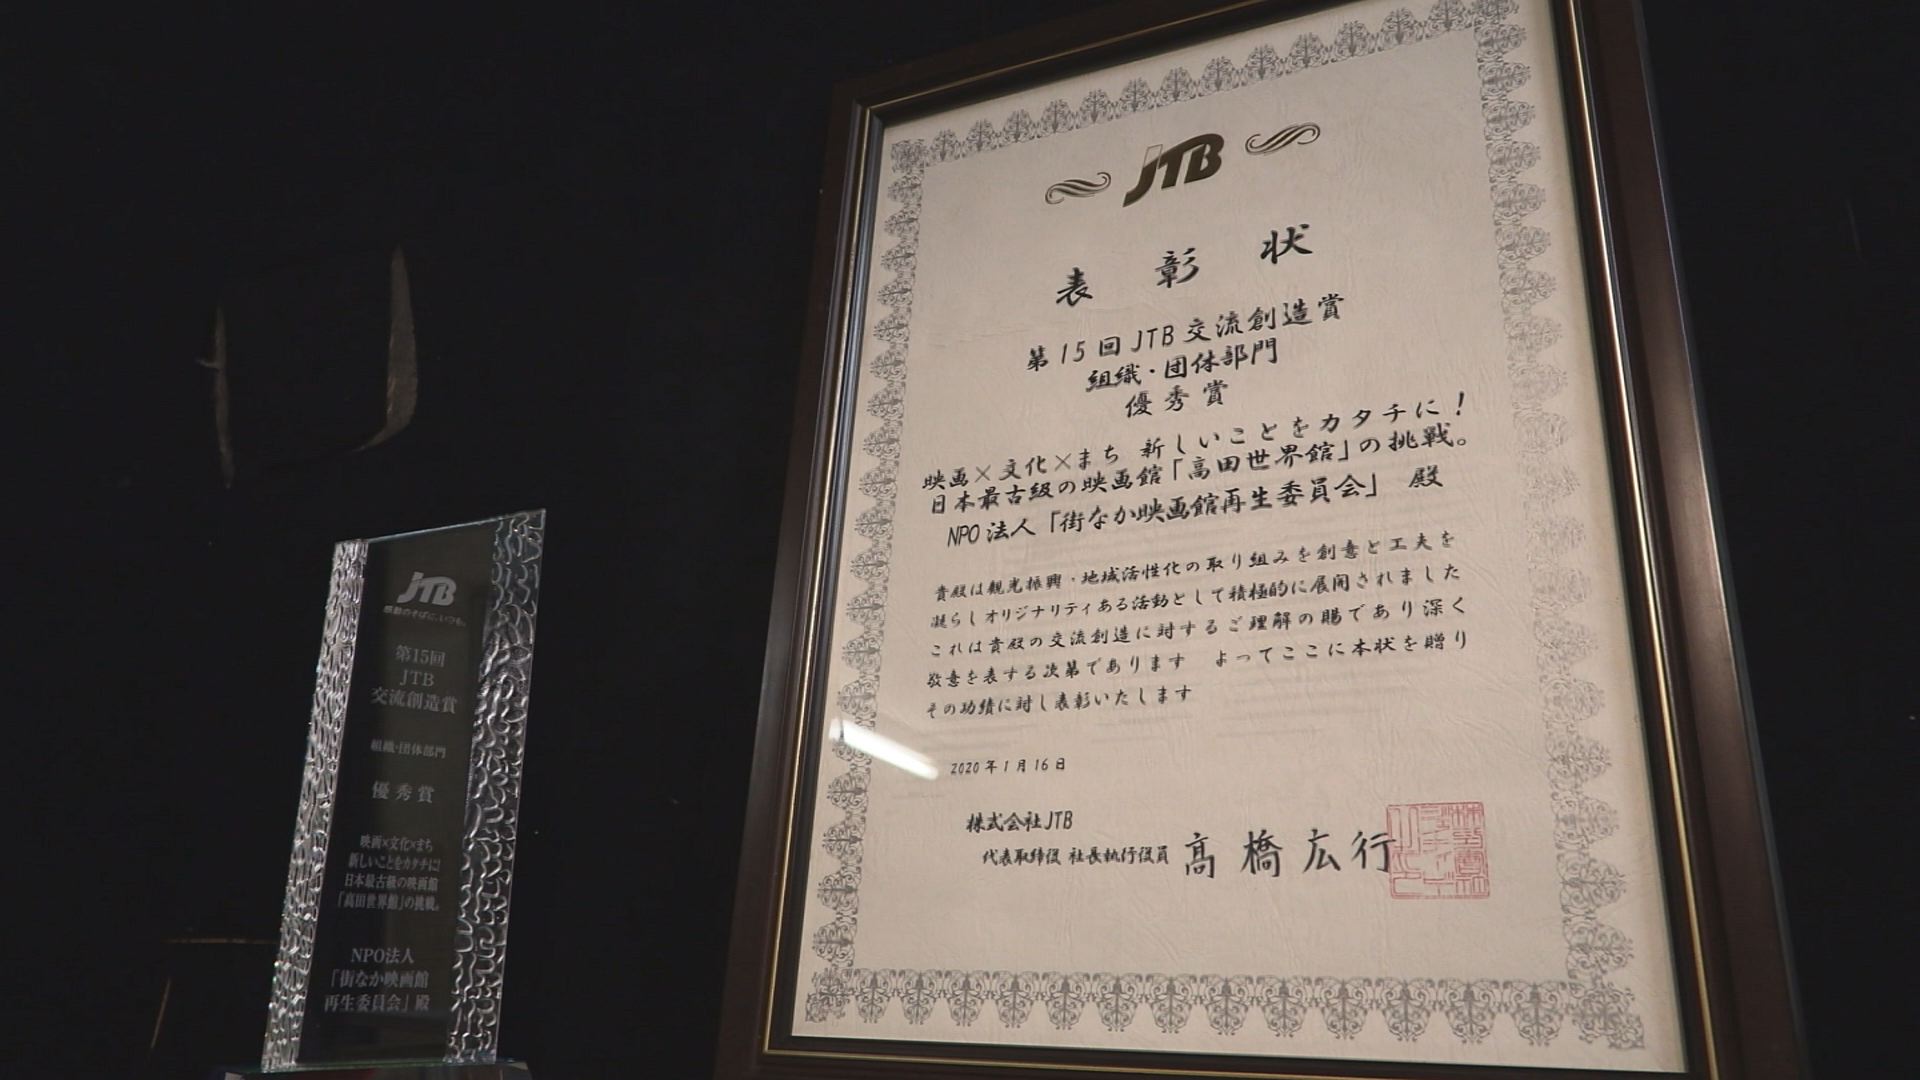 JTB
感動のそばに、いつも。
第15回
JTB
交流創造賞
組織・団体部門
優秀賞
映画×文化×まち
新しいことをカタチに!
日本最古級の映画館
「高田世界館」の挑戦。
NPO法人
「街なか映画館
再生委員会」殿
JTB
表彰状
第15回JTB交流創造賞
組織・団体部門
優秀賞
映画×文化×まち 新しいことをカタチに!
日本最古級の映画館「高田世界館」の挑戦。
NPO法人「街なか映画館再生委員会」 殿
貴殿は観光振興・地域活性化の取り組みを創意と工夫を
凝らしオリジナリティある活動として積極的に展開されました
これは貴殿の交流創造に対するご理解の賜であり深く
敬意を表する次第であります よってここに本状を贈り
その功績に対し表彰いたします
2020年1月16日
株式会社JTB
代表取締役 社長執行役員 髙橋広行